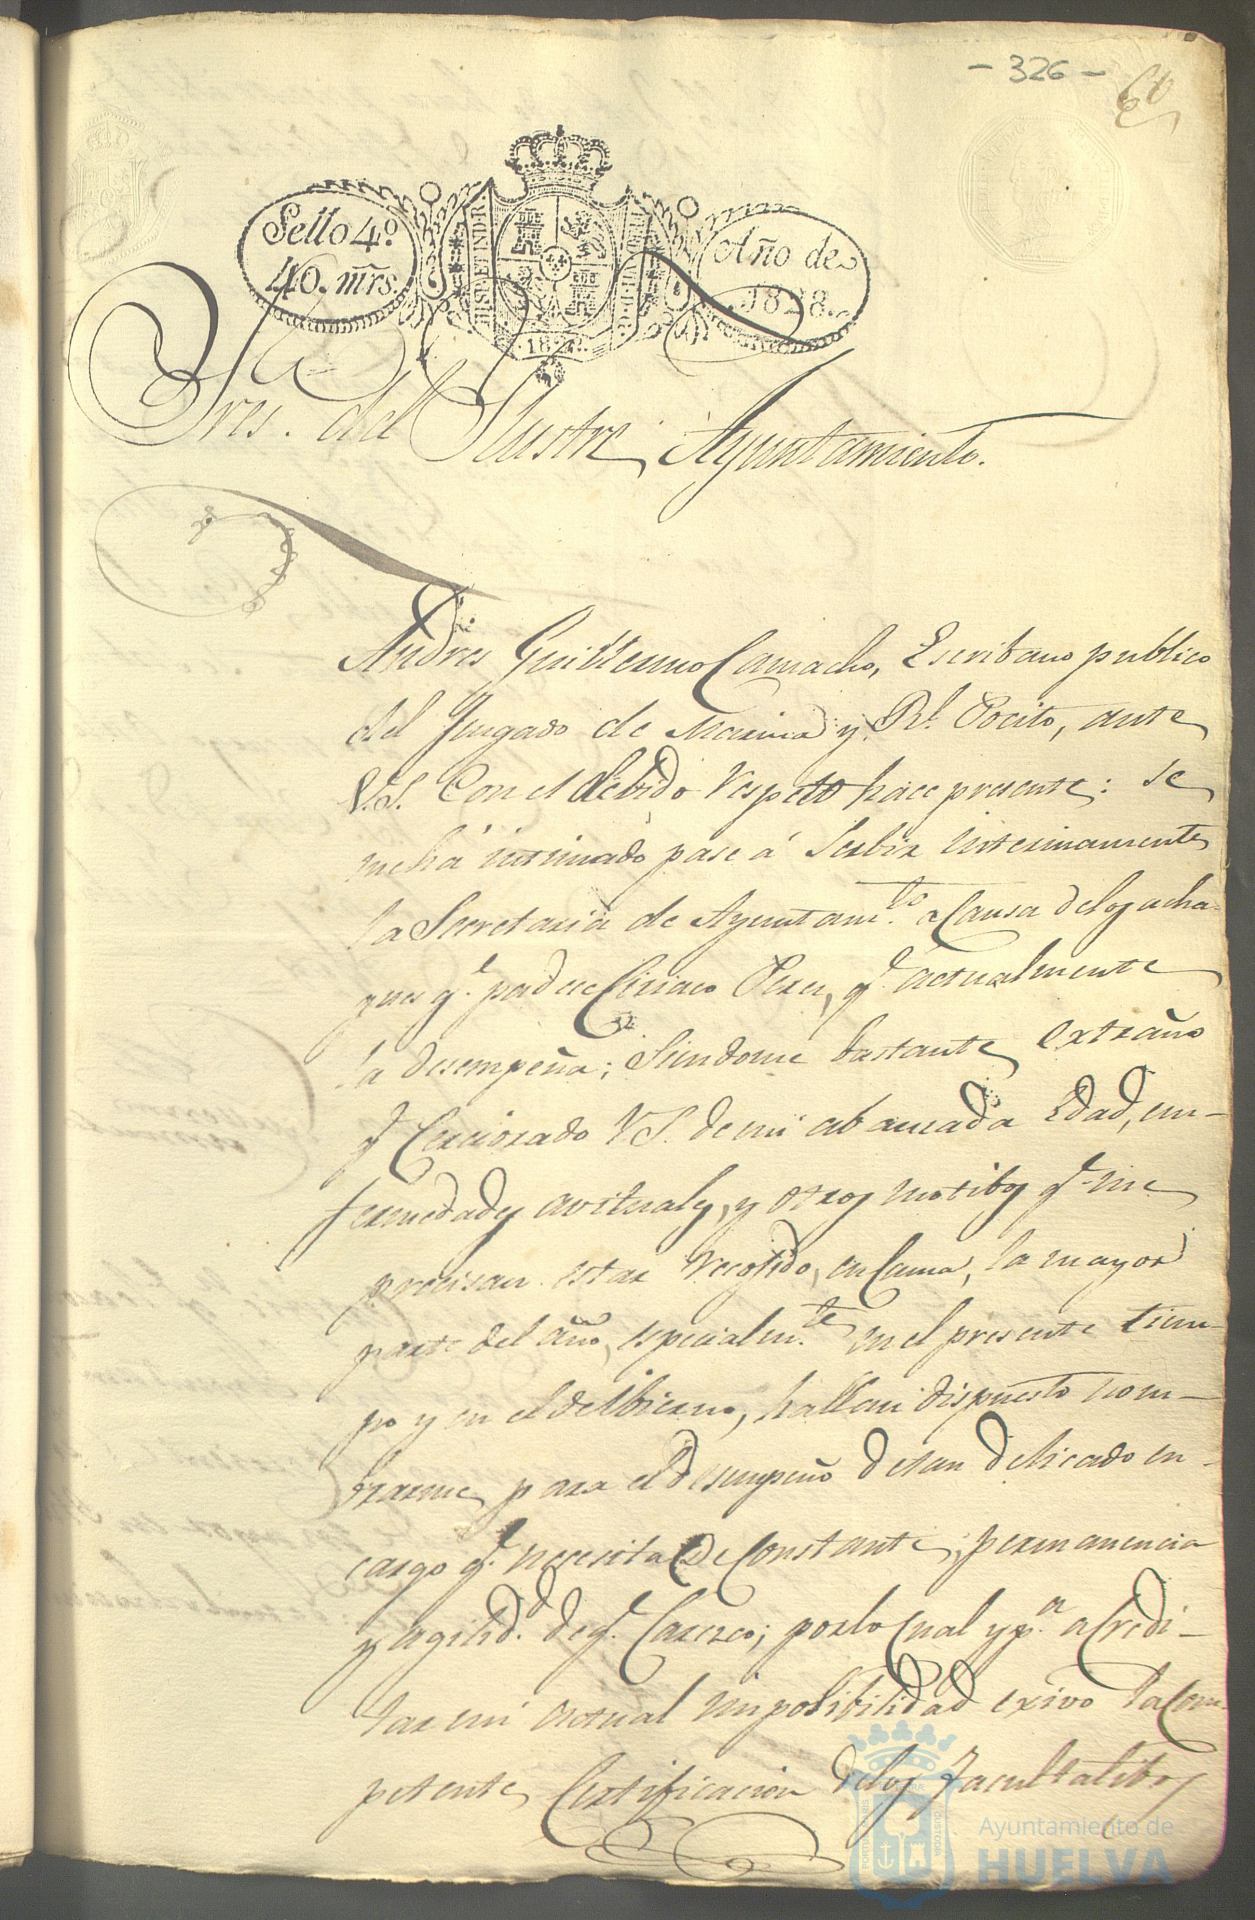 - 326 -
60
Sello 4º
40. mrs.
HISP. ET IND. R
Año de
1828.
Sres. del Ilustre Ayuntamiento.
Andres Guillermo Camacho, Escribano publico
del Jusgado de Marina y Rl. Pocito, ante
V.S. Con el debido respeto hace presente: se
me há intimado pase á Serbir interinamente
la Secretaria de Ayuntamto. a Causa de los acha-
ques q.e padece Ciriaco Perez, q.e actualmente
la desempeña; Siendome bastante extraño
q.e Cerciorado V.S. de mi abansada Edad, en-
fermedades avituales, y otros motibos q.e me
precisan estar recogido, en Cama, la mayor
parte del año, especialm.te en el presente tiem-
po y en el del Ibierno, hallan dispuesto nom-
brarme para el desempeño de tan delicado en-
cargo q.e necesita de Constante permanencia
y agilid.d de q.e Caresco; por lo Cual y p.a aCredi-
tar mi actual imposibilidad exivo la Com-
petente Certificacion de los Facultatibos
Ayuntamiento de
HUELVA